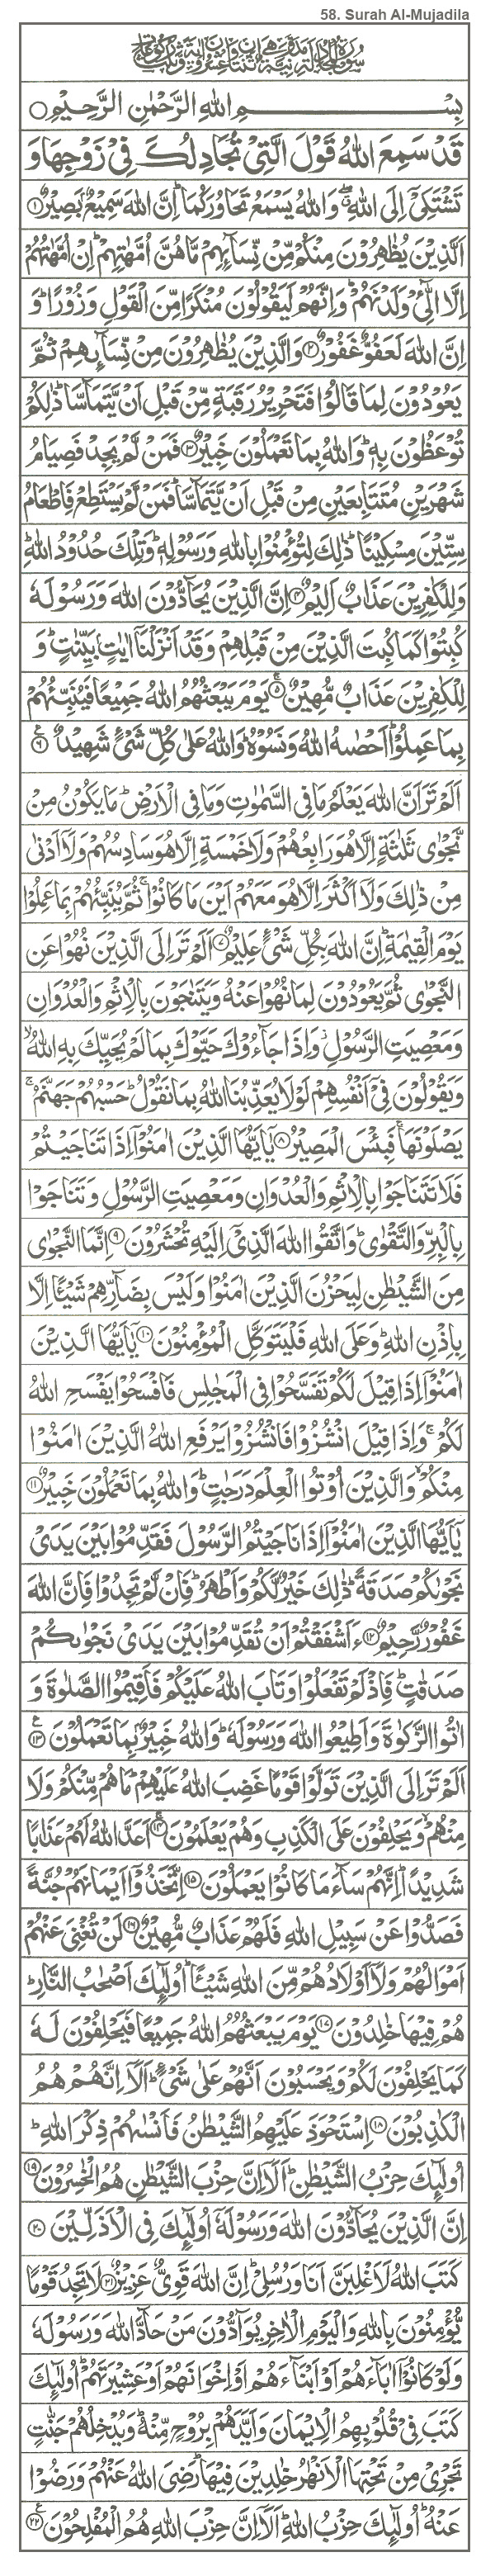 58. Surah Al-Mujadila
بِسْمِ اللهِ الرَّحْمٰنِ الرَّحِيْمِ
قَدْ سَمِعَ اللهُ قَوْلَ الَّتِيْ تُجَادِلُكَ فِيْ زَوْجِهَا وَ
تَشْتَكِيْٓ اِلَى اللهِ ۖ وَاللهُ يَسْمَعُ تَحَاوُرَكُمَا ؕ اِنَّ اللهَ سَمِيْعٌۢ بَصِيْرٌ ۝۱
اَلَّذِيْنَ يُظٰهِرُوْنَ مِنْكُمْ مِّنْ نِّسَآئِهِمْ مَّا هُنَّ اُمَّهٰتِهِمْ ؕ اِنْ اُمَّهٰتُهُمْ
اِلَّا الّٰٓـِٔيْ وَلَدْنَهُمْ ؕ وَاِنَّهُمْ لَيَقُوْلُوْنَ مُنْكَرًا مِّنَ الْقَوْلِ وَزُوْرًا ؕ وَ
اِنَّ اللهَ لَعَفُوٌّ غَفُوْرٌ ۝۲ وَالَّذِيْنَ يُظٰهِرُوْنَ مِنْ نِّسَآئِهِمْ ثُمَّ
يَعُوْدُوْنَ لِمَا قَالُوْا فَتَحْرِيْرُ رَقَبَةٍ مِّنْ قَبْلِ اَنْ يَّتَمَآسَّا ؕ ذٰلِكُمْ
تُوْعَظُوْنَ بِهٖ ؕ وَاللهُ بِمَا تَعْمَلُوْنَ خَبِيْرٌ ۝۳ فَمَنْ لَّمْ يَجِدْ فَصِيَامُ
شَهْرَيْنِ مُتَتَابِعَيْنِ مِنْ قَبْلِ اَنْ يَّتَمَآسَّا ؕ فَمَنْ لَّمْ يَسْتَطِعْ فَاِطْعَامُ
سِتِّيْنَ مِسْكِيْنًا ؕ ذٰلِكَ لِتُؤْمِنُوْا بِاللهِ وَرَسُوْلِهٖ ؕ وَتِلْكَ حُدُوْدُ اللهِ ؕ
وَلِلْكٰفِرِيْنَ عَذَابٌ اَلِيْمٌ ۝۴ اِنَّ الَّذِيْنَ يُحَآدُّوْنَ اللهَ وَرَسُوْلَهٗ
كُبِتُوْا كَمَا كُبِتَ الَّذِيْنَ مِنْ قَبْلِهِمْ وَقَدْ اَنْزَلْنَآ اٰيٰتٍۭ بَيِّنٰتٍ ؕ وَ
لِلْكٰفِرِيْنَ عَذَابٌ مُّهِيْنٌ ۝۵ يَوْمَ يَبْعَثُهُمُ اللهُ جَمِيْعًا فَيُنَبِّئُهُمْ
بِمَا عَمِلُوْا ؕ اَحْصٰىهُ اللهُ وَنَسُوْهُ ؕ وَاللهُ عَلٰى كُلِّ شَيْءٍ شَهِيْدٌ ۝۶
اَلَمْ تَرَ اَنَّ اللهَ يَعْلَمُ مَا فِي السَّمٰوٰتِ وَمَا فِي الْاَرْضِ ؕ مَا يَكُوْنُ مِنْ
نَّجْوٰى ثَلٰثَةٍ اِلَّا هُوَ رَابِعُهُمْ وَلَا خَمْسَةٍ اِلَّا هُوَ سَادِسُهُمْ وَلَآ اَدْنٰى
مِنْ ذٰلِكَ وَلَآ اَكْثَرَ اِلَّا هُوَ مَعَهُمْ اَيْنَ مَا كَانُوْا ۚ ثُمَّ يُنَبِّئُهُمْ بِمَا عَمِلُوْا
يَوْمَ الْقِيٰمَةِ ؕ اِنَّ اللهَ بِكُلِّ شَيْءٍ عَلِيْمٌ ۝۷ اَلَمْ تَرَ اِلَى الَّذِيْنَ نُهُوْا عَنِ
النَّجْوٰى ثُمَّ يَعُوْدُوْنَ لِمَا نُهُوْا عَنْهُ وَيَتَنٰجَوْنَ بِالْاِثْمِ وَالْعُدْوَانِ
وَمَعْصِيَتِ الرَّسُوْلِ ؗ وَاِذَا جَآءُوْكَ حَيَّوْكَ بِمَا لَمْ يُحَيِّكَ بِهِ اللهُ ۙ
وَيَقُوْلُوْنَ فِيْٓ اَنْفُسِهِمْ لَوْلَا يُعَذِّبُنَا اللهُ بِمَا نَقُوْلُ ؕ حَسْبُهُمْ جَهَنَّمُ ۚ
يَصْلَوْنَهَا ۚ فَبِئْسَ الْمَصِيْرُ ۝۸ يٰٓاَيُّهَا الَّذِيْنَ اٰمَنُوْٓا اِذَا تَنَاجَيْتُمْ
فَلَا تَتَنَاجَوْا بِالْاِثْمِ وَالْعُدْوَانِ وَمَعْصِيَتِ الرَّسُوْلِ وَتَنَاجَوْا
بِالْبِرِّ وَالتَّقْوٰى ؕ وَاتَّقُوا اللهَ الَّذِيْٓ اِلَيْهِ تُحْشَرُوْنَ ۝۹ اِنَّمَا النَّجْوٰى
مِنَ الشَّيْطٰنِ لِيَحْزُنَ الَّذِيْنَ اٰمَنُوْا وَلَيْسَ بِضَآرِّهِمْ شَيْـًٔا اِلَّا
بِاِذْنِ اللهِ ؕ وَعَلَى اللهِ فَلْيَتَوَكَّلِ الْمُؤْمِنُوْنَ ۝۱۰ يٰٓاَيُّهَا الَّذِيْنَ
اٰمَنُوْٓا اِذَا قِيْلَ لَكُمْ تَفَسَّحُوْا فِي الْمَجٰلِسِ فَافْسَحُوْا يَفْسَحِ اللهُ
لَكُمْ ۚ وَاِذَا قِيْلَ انْشُزُوْا فَانْشُزُوْا يَرْفَعِ اللهُ الَّذِيْنَ اٰمَنُوْا
مِنْكُمْ ۙ وَالَّذِيْنَ اُوْتُوا الْعِلْمَ دَرَجٰتٍ ؕ وَاللهُ بِمَا تَعْمَلُوْنَ خَبِيْرٌ ۝۱۱
يٰٓاَيُّهَا الَّذِيْنَ اٰمَنُوْٓا اِذَا نَاجَيْتُمُ الرَّسُوْلَ فَقَدِّمُوْا بَيْنَ يَدَيْ
نَجْوٰىكُمْ صَدَقَةً ؕ ذٰلِكَ خَيْرٌ لَّكُمْ وَاَطْهَرُ ؕ فَاِنْ لَّمْ تَجِدُوْا فَاِنَّ اللهَ
غَفُوْرٌ رَّحِيْمٌ ۝۱۲ ءَاَشْفَقْتُمْ اَنْ تُقَدِّمُوْا بَيْنَ يَدَيْ نَجْوٰىكُمْ
صَدَقٰتٍ ؕ فَاِذْ لَمْ تَفْعَلُوْا وَتَابَ اللهُ عَلَيْكُمْ فَاَقِيْمُوا الصَّلٰوةَ وَ
اٰتُوا الزَّكٰوةَ وَاَطِيْعُوا اللهَ وَرَسُوْلَهٗ ؕ وَاللهُ خَبِيْرٌۢ بِمَا تَعْمَلُوْنَ ۝۱۳
اَلَمْ تَرَ اِلَى الَّذِيْنَ تَوَلَّوْا قَوْمًا غَضِبَ اللهُ عَلَيْهِمْ ؕ مَا هُمْ مِّنْكُمْ وَلَا
مِنْهُمْ ۙ وَيَحْلِفُوْنَ عَلَى الْكَذِبِ وَهُمْ يَعْلَمُوْنَ ۝۱۴ اَعَدَّ اللهُ لَهُمْ عَذَابًا
شَدِيْدًا ؕ اِنَّهُمْ سَآءَ مَا كَانُوْا يَعْمَلُوْنَ ۝۱۵ اِتَّخَذُوْٓا اَيْمَانَهُمْ جُنَّةً
فَصَدُّوْا عَنْ سَبِيْلِ اللهِ فَلَهُمْ عَذَابٌ مُّهِيْنٌ ۝۱۶ لَنْ تُغْنِيَ عَنْهُمْ
اَمْوَالُهُمْ وَلَآ اَوْلَادُهُمْ مِّنَ اللهِ شَيْـًٔا ؕ اُولٰٓئِكَ اَصْحٰبُ النَّارِ ؕ
هُمْ فِيْهَا خٰلِدُوْنَ ۝۱۷ يَوْمَ يَبْعَثُهُمُ اللهُ جَمِيْعًا فَيَحْلِفُوْنَ لَهٗ
كَمَا يَحْلِفُوْنَ لَكُمْ وَيَحْسَبُوْنَ اَنَّهُمْ عَلٰى شَيْءٍ ؕ اَلَآ اِنَّهُمْ هُمُ
الْكٰذِبُوْنَ ۝۱۸ اِسْتَحْوَذَ عَلَيْهِمُ الشَّيْطٰنُ فَاَنْسٰىهُمْ ذِكْرَ اللهِ ؕ
اُولٰٓئِكَ حِزْبُ الشَّيْطٰنِ ؕ اَلَآ اِنَّ حِزْبَ الشَّيْطٰنِ هُمُ الْخٰسِرُوْنَ ۝۱۹
اِنَّ الَّذِيْنَ يُحَآدُّوْنَ اللهَ وَرَسُوْلَهٗٓ اُولٰٓئِكَ فِي الْاَذَلِّيْنَ ۝۲۰
كَتَبَ اللهُ لَاَغْلِبَنَّ اَنَا وَرُسُلِيْ ؕ اِنَّ اللهَ قَوِيٌّ عَزِيْزٌ ۝۲۱ لَا تَجِدُ قَوْمًا
يُّؤْمِنُوْنَ بِاللهِ وَالْيَوْمِ الْاٰخِرِ يُوَآدُّوْنَ مَنْ حَآدَّ اللهَ وَرَسُوْلَهٗ
وَلَوْ كَانُوْٓا اٰبَآءَهُمْ اَوْ اَبْنَآءَهُمْ اَوْ اِخْوَانَهُمْ اَوْ عَشِيْرَتَهُمْ ؕ اُولٰٓئِكَ
كَتَبَ فِيْ قُلُوْبِهِمُ الْاِيْمَانَ وَاَيَّدَهُمْ بِرُوْحٍ مِّنْهُ ؕ وَيُدْخِلُهُمْ جَنّٰتٍ
تَجْرِيْ مِنْ تَحْتِهَا الْاَنْهٰرُ خٰلِدِيْنَ فِيْهَا ؕ رَضِيَ اللهُ عَنْهُمْ وَرَضُوْا
عَنْهُ ؕ اُولٰٓئِكَ حِزْبُ اللهِ ؕ اَلَآ اِنَّ حِزْبَ اللهِ هُمُ الْمُفْلِحُوْنَ ۝۲۲